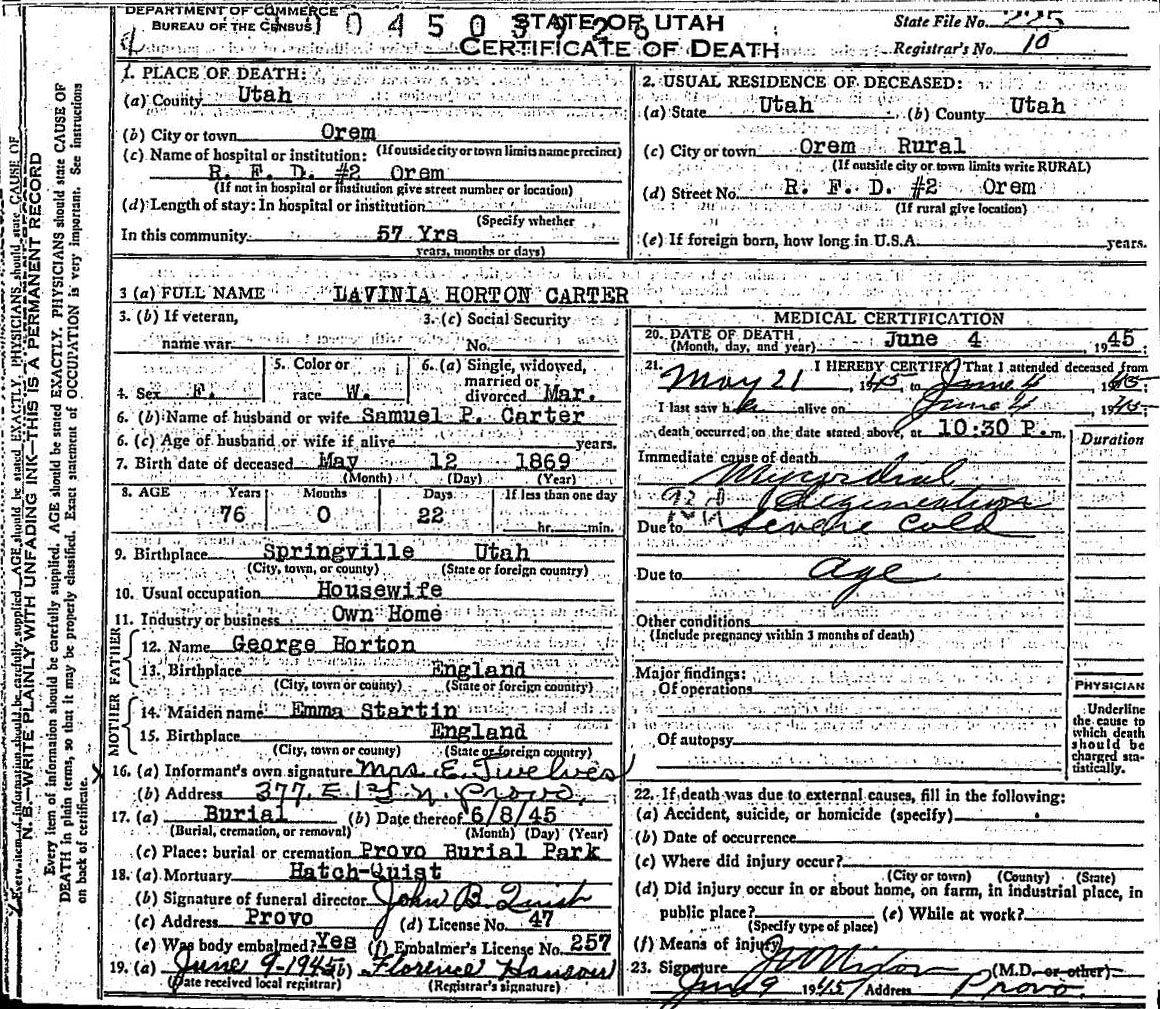 DEPARTMENT OF COMMERCE
BUREAU OF THE CENSUS
STATE OF UTAH
CERTIFICATE OF DEATH
State File No. 225
Registrar's No. 10
1. PLACE OF DEATH:
(a) County Utah
(b) City or town Orem
(If outside city or town limits name precinct)
(c) Name of hospital or institution:
R. F. D. #2 Orem
(If not in hospital or institution give street number or location)
(d) Length of stay: In hospital or institution
(Specify whether
In this community 57 Yrs
years, months or days)
2. USUAL RESIDENCE OF DECEASED:
(a) State Utah (b) County Utah
(c) City or town Orem Rural
(If outside city or town limits write RURAL)
(d) Street No. R. F. D. #2 Orem
(If rural give location)
(e) If foreign born, how long in U.S.A. years.
3 (a) FULL NAME LAVINIA HORTON CARTER
3. (b) If veteran,
name war
3. (c) Social Security
No.
4. Sex F.
5. Color or
race W.
6. (a) Single, widowed,
married or
divorced Mar.
6. (b) Name of husband or wife Samuel P. Carter
6. (c) Age of husband or wife if alive years.
7. Birth date of deceased May 12 1869
(Month) (Day) (Year)
8. AGE Years Months Days If less than one day
76 0 22 hr. min.
9. Birthplace Springville Utah
(City, town, or county) (State or foreign country)
10. Usual occupation Housewife
11. Industry or business Own Home
FATHER
12. Name George Horton
13. Birthplace England
(City, town or county) (State or foreign country)
MOTHER
14. Maiden name Emma Startin
15. Birthplace England
(City, town or county) (State or foreign country)
16. (a) Informant's own signature Mrs. E. Twelves
(b) Address 377. E 1st N. Provo.
17. (a) Burial (b) Date thereof 6/8/45
(Burial, cremation, or removal) (Month) (Day) (Year)
(c) Place: burial or cremation Provo Burial Park
18. (a) Mortuary Hatch-Quist
(b) Signature of funeral director John B. Quist
(c) Address Provo (d) License No. 47
(e) Was body embalmed? Yes (f) Embalmer's License No. 257
19. (a) June 9-1945 (b) Florence Hanson
(Date received local registrar) (Registrar's signature)
MEDICAL CERTIFICATION
20. DATE OF DEATH
(Month, day, and year) June 4 1945
21. I HEREBY CERTIFY That I attended deceased from
May 21, 1945 to June 4 1945;
I last saw h alive on June 4, 1945;
death occurred on the date stated above, at 10:30 P. m.
Duration
Immediate cause of death
Myocardial
degeneration
Due to Severe Cold
Due to Age
Other conditions
(Include pregnancy within 3 months of death)
Major findings:
Of operations
Of autopsy
PHYSICIAN
Underline
the cause to
which death
should be
charged sta-
tistically.
22. If death was due to external causes, fill in the following:
(a) Accident, suicide, or homicide (specify)
(b) Date of occurrence
(c) Where did injury occur?
(City or town) (County) (State)
(d) Did injury occur in or about home, on farm, in industrial place, in
public place? (e) While at work?
(Specify type of place)
(f) Means of injury
23. Signature (M.D. or other)
June 9 1945 Address Provo.
N. B.—WRITE PLAINLY WITH UNFADING INK—THIS IS A PERMANENT RECORD
Every item of information should be carefully supplied. AGE should be stated EXACTLY. PHYSICIANS should state CAUSE OF
DEATH in plain terms, so that it may be properly classified. Exact statement of OCCUPATION is very important. See instructions
on back of certificate.